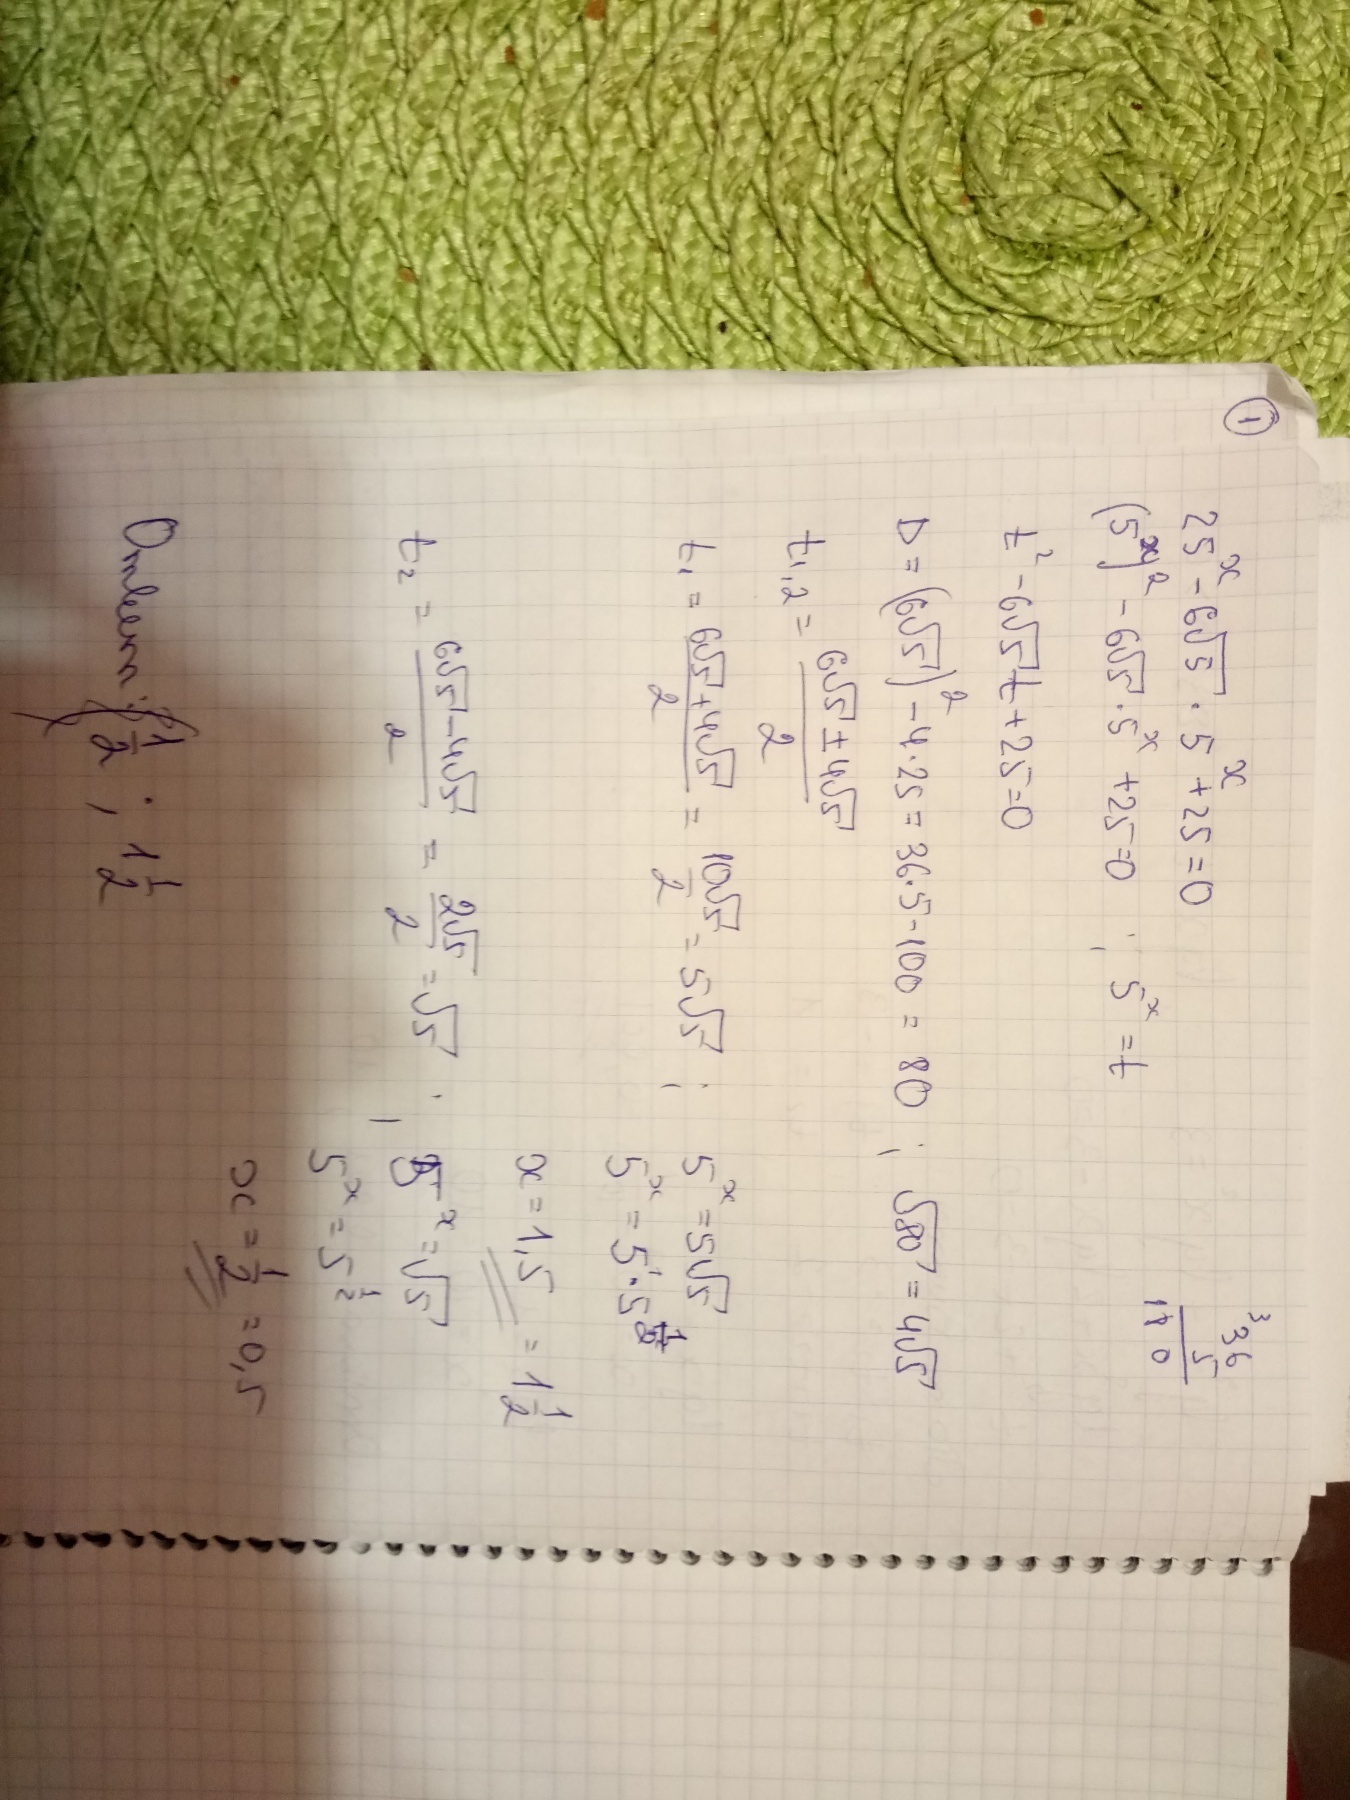 ①
25ˣ - 6√5 · 5ˣ + 25 = 0
(5ˣ)² - 6√5 · 5ˣ + 25 = 0 ; 5ˣ = t
³36
5
180
t² - 6√5 t + 25 = 0
D = (6√5)² - 4·25 = 36·5 - 100 = 80 ; √80 = 4√5
t₁,₂ = (6√5 ± 4√5)/2
t₁ = (6√5 + 4√5)/2 = 10√5/2 = 5√5 ; 5ˣ = 5√5
5ˣ = 5¹ · 5^(1/2)
x = 1,5 = 1 1/2
t₂ = (6√5 - 4√5)/2 = 2√5/2 = √5 ; 5ˣ = √5
5ˣ = 5^(1/2)
x = 1/2 = 0,5
Ответ: 1/2 ; 1 1/2